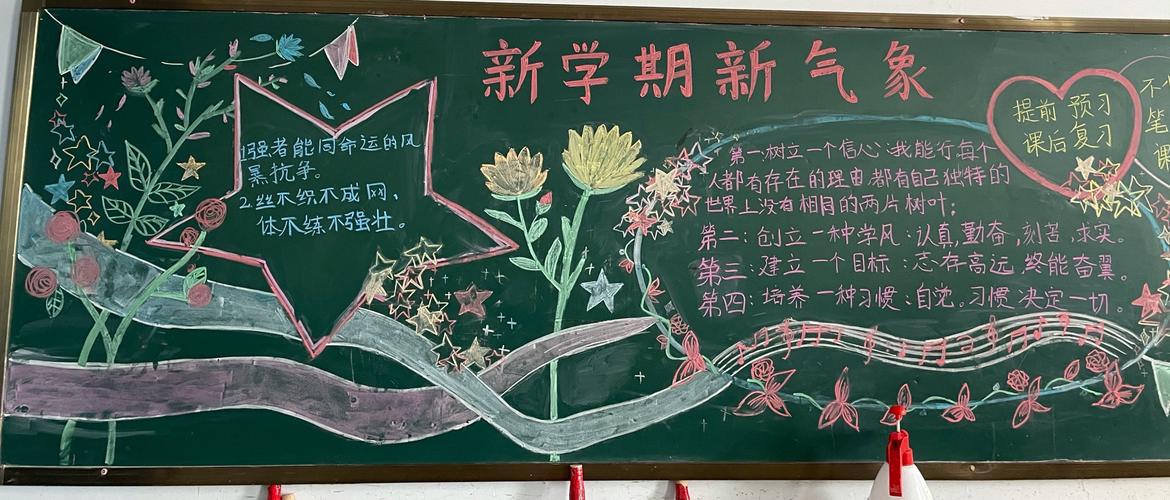 新学期新气象
1.强者能同命运的风
暴抗争。
2.丝不织不成网,
体不练不强壮。
第一:树立一个信心:我能行每个
人都有存在的理由,都有自己独特的
世界上没有相同的两片树叶;
第二:创立一种学风:认真,勤奋,刻苦,求实。
第三:建立一个目标:志存高远,终能奋翼。
第四:培养一种习惯:自觉。习惯决定一切。
提前预习
课后复习
不
笔
课